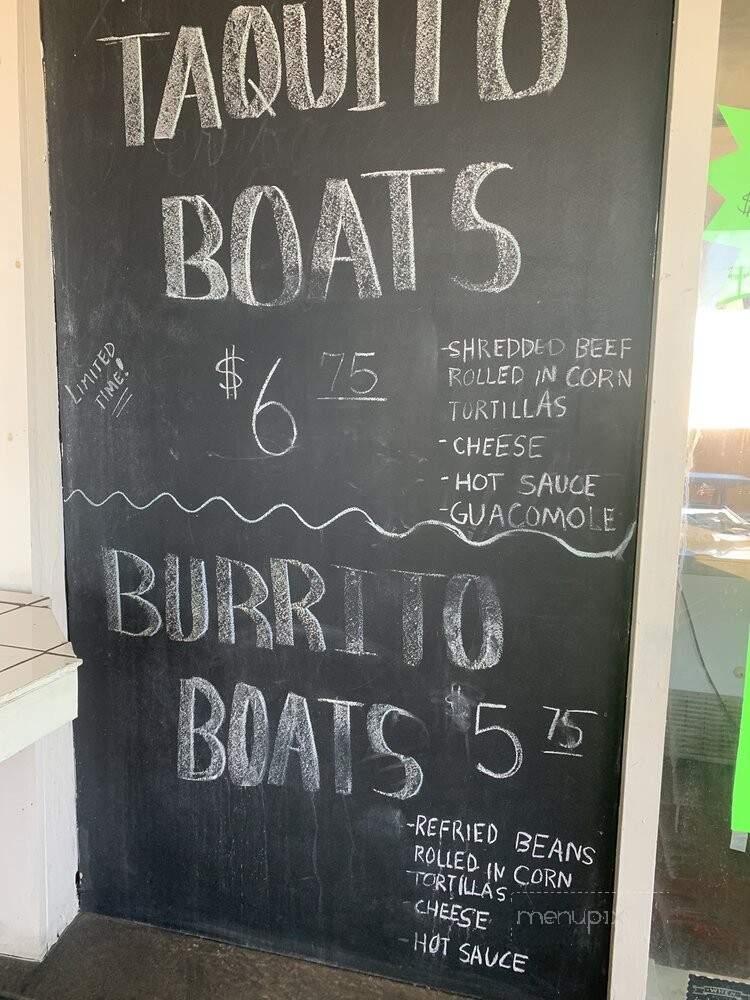 TAQUITO
BOATS
LIMITED
TIME!
$6 75
-SHREDDED BEEF
ROLLED IN CORN
TORTILLAS
- CHEESE
- HOT SAUCE
-GUACOMOLE
BURRITO
BOATS $5 75
-REFRIED BEANS
ROLLED IN CORN
TORTILLAS
- CHEESE
- HOT SAUCE
menupix
WHEN